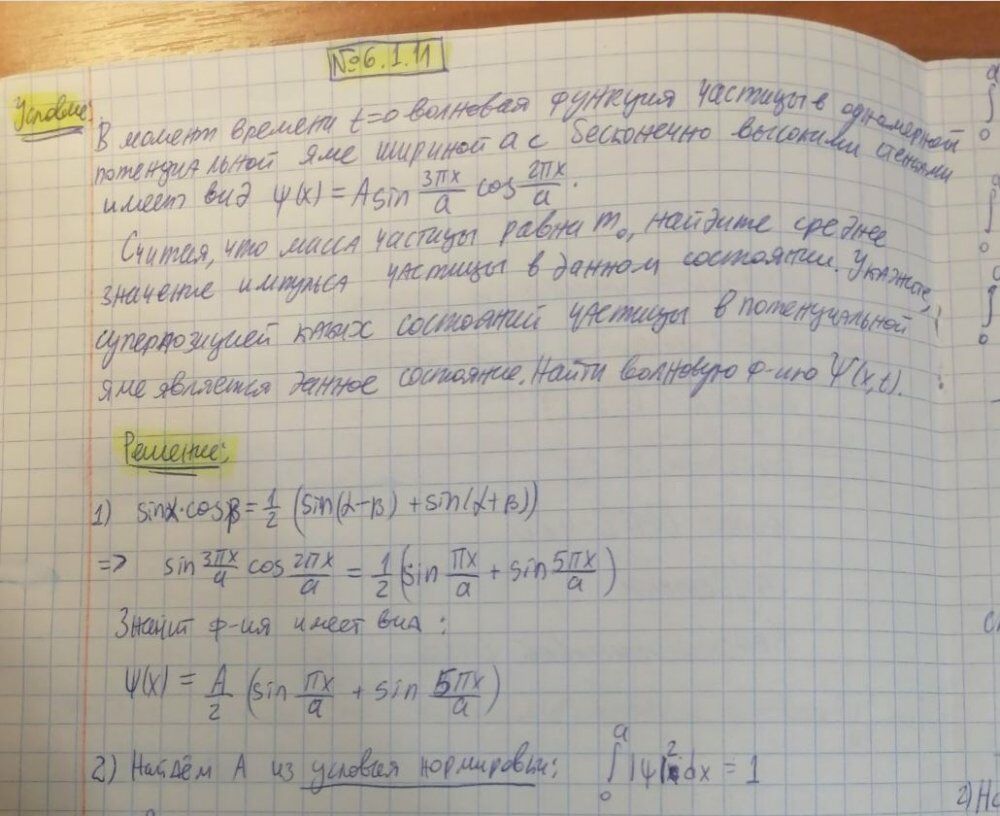 №6.1.11
Условие:
В момент времени t=0 волновая функция частицы в одномерной
потенциальной яме шириной a с бесконечно высокими стенками
имеет вид ψ(x) = A sin 3πx/a cos 2πx/a.
Считая, что масса частицы равна m₀, найдите среднее
значение импульса частицы в данном состоянии. Укажите,
суперпозицией каких состояний частицы в потенциальной
яме является данное состояние. Найти волновую ф-ию Ψ(x,t).
Решение:
1) sinα·cosβ = 1/2 (sin(α-β) + sin(α+β))
=> sin 3πx/a cos 2πx/a = 1/2 (sin πx/a + sin 5πx/a)
Значит ф-ия имеет вид:
ψ(x) = A/2 (sin πx/a + sin 5πx/a)
2) Найдём A из условия нормировки: ∫₀ᵃ |ψ|² dx = 1